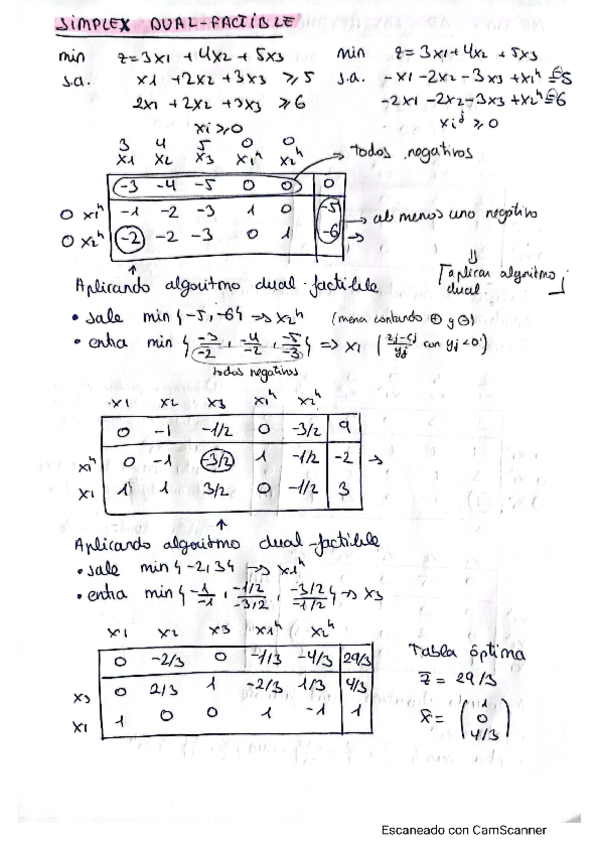 SIMPLEX DUAL-FACTIBLE
min z=3x1 +4x2 +5x3
s.a. x1 +2x2 +3x3 ≥ 5
2x1 +2x2 +3x3 ≥ 6
xi ≥ 0
min z=3x1+4x2 +5x3
s.a. -x1 -2x2 -3x3 +x1ʰ = -5
-2x1 -2x2 -3x3 +x2ʰ = -6
xiʲ ≥ 0
3 4 5 0 0
x1 x2 x3 x1ʰ x2ʰ → todos negativos
-3 -4 -5 0 0 0
0 x1ʰ -1 -2 -3 1 0 -5 → al menos uno negativo
0 x2ʰ -2 -2 -3 0 1 -6 →
⇓
↑
Aplicando algoritmo dual-factible
[aplicar algoritmo dual]
• sale min {-5,-6} => x2ʰ (menor contando ⊕ y ⊖)
• entra min { -3/-2 , -4/-2 , -5/-3 } => x1 ( zj-cj/yj con yj<0 )
todos negativos
x1 x2 x3 x1ʰ x2ʰ
0 -1 -1/2 0 -3/2 9
x1ʰ 0 -1 -3/2 1 -1/2 -2 →
x1 1 1 3/2 0 -1/2 3
↑
Aplicando algoritmo dual-factible
• sale min {-2,3} -> x1ʰ
• entra min { -1/-1 , -1/2/-3/2 , -3/2/-1/2 } -> x3
x1 x2 x3 x1ʰ x2ʰ
0 -2/3 0 -1/3 -4/3 29/3
x3 0 2/3 1 -2/3 1/3 4/3
x1 1 0 0 1 -1 1
Tabla óptima
z̄ = 29/3
x̄ = (1
0
4/3)
Escaneado con CamScanner